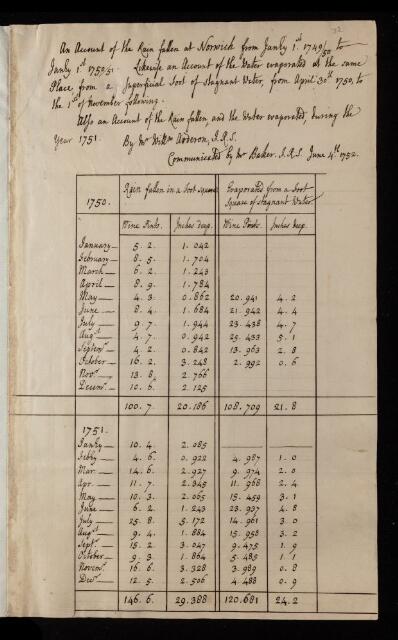 An Account of the Rain fallen at Norwich from Janry 1st 1749/50 to
Janry 1st 1750/51. Likewise an Account of the Water evaporated at the same
Place from a Superficial Foot of Stagnant Water, from April 30th 1750, to
the 1st of November following.
Also an Account of the Rain fallen, and the Water evaporated, during the
Year 1751. By Mr Willm Arderon, F.R.S.
Communicated by Mr Baker. F.R.S. June 4th 1752.
1750. Rain fallen in a Foot Square Evaporated from a Foot Square of Stagnant Water
Wine Pints. Inches deep. Wine Pints. Inches deep.
January — 5. 2. 1. 042
February — 8. 5. 1. 704
March — 6. 2. 1. 243
April — 8. 9. 1. 784
May — 4. 3. 0. 862 20. 941 4. 2
June — 8. 4. 1. 684 21. 942 4. 4
July — 9. 7. 1. 944 23. 438 4. 7
Augst — 4. 7. 0. 942 25. 433 5. 1
Septemr — 4. 2. 0. 842 13. 963 2. 8
October — 16. 2. 3. 248 2. 992 0. 6
Novr — 13. 8. 2. 766
Decemr — 10. 6. 2. 125
100. 7. 20. 186 108. 709 21. 8
1751.
Janry — 10. 4. 2. 085
Febry — 4. 6. 0. 922 4. 987 1. 0
Mar — 14. 6. 2. 927 9. 974 2. 0
Apr. — 11. 7. 2. 345 11. 968 2. 4
May — 10. 3. 2. 065 15. 459 3. 1
June — 6. 2. 1. 243 23. 937 4. 8
July — 25. 8. 5. 172 14. 961 3. 0
Augst — 9. 4. 1. 884 15. 958 3. 2
Sept. — 15. 2. 3. 047 9. 475 1. 9
October — 9. 3. 1. 864 5. 485 1. 1
Novemr — 16. 6. 3. 328 3. 989 0. 8
Decr — 12. 5. 2. 506 4. 488 0. 9
146. 6. 29. 388 120. 681 24. 2